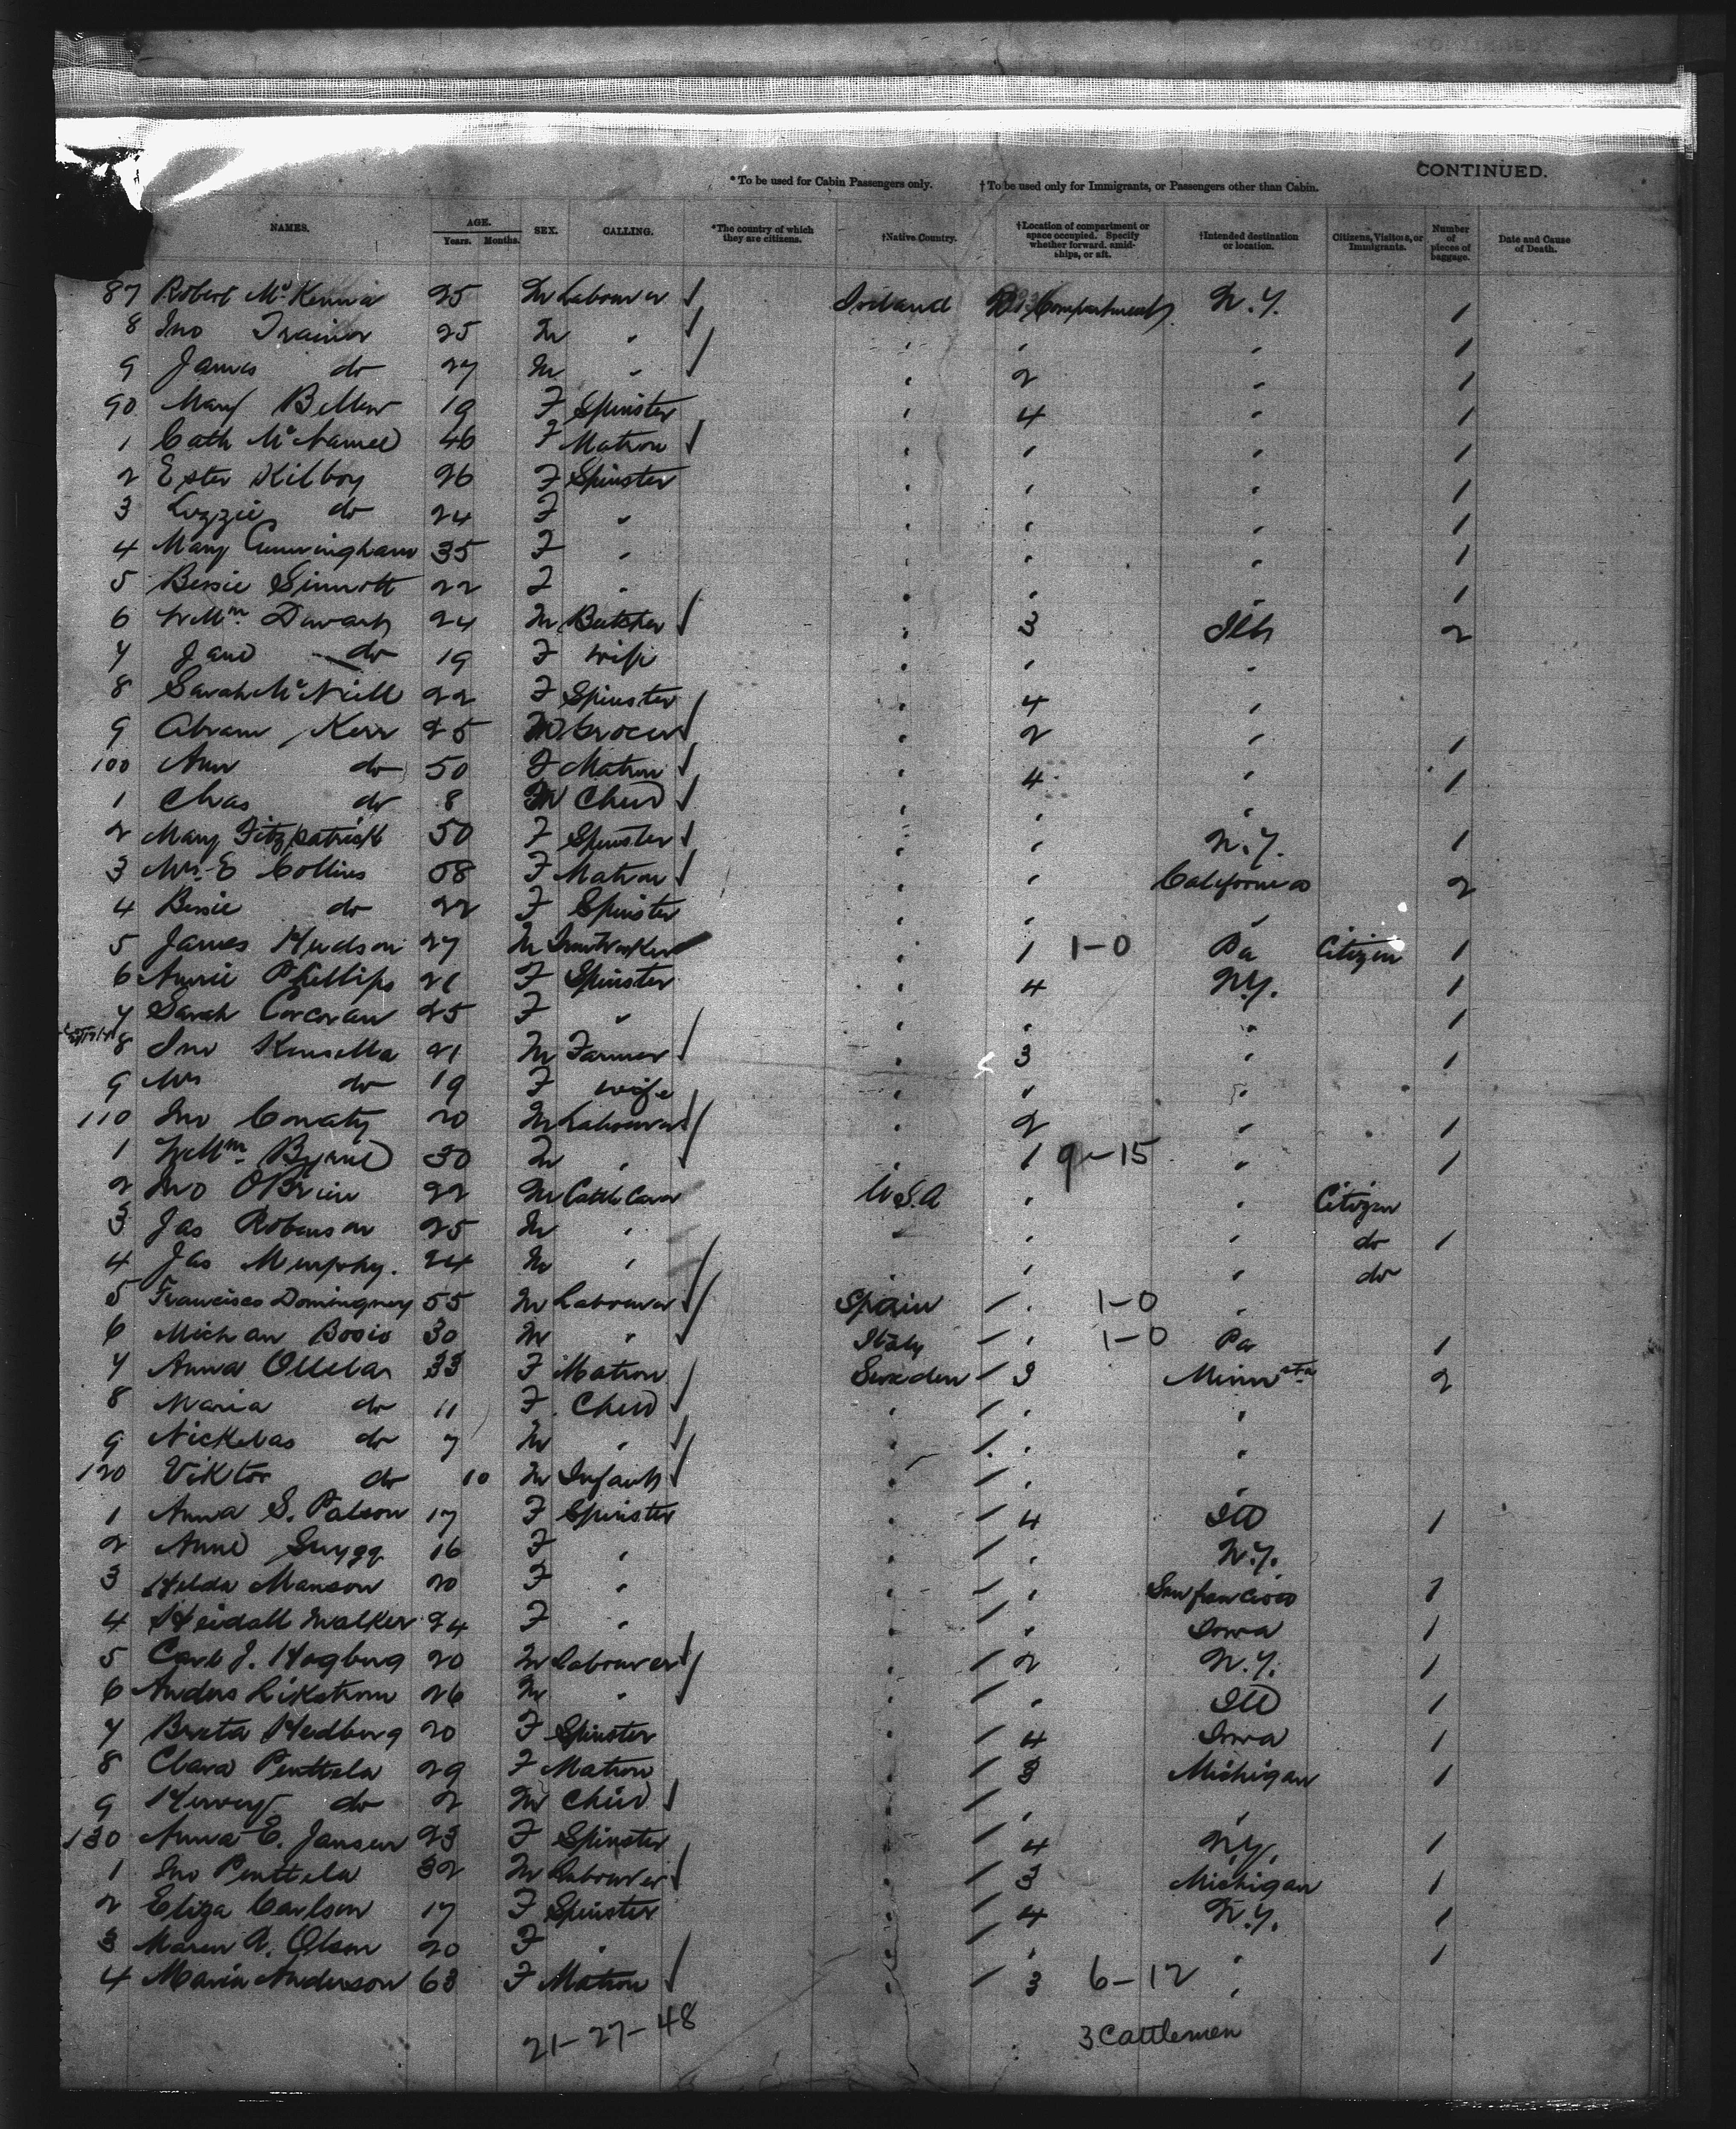 CONTINUED.
* To be used for Cabin Passengers only. † To be used only for Immigrants, or Passengers other than Cabin.
NAMES. AGE. Years. Months. SEX. CALLING. *The country of which they are citizens. †Native Country. †Location of compartment or space occupied. Specify whether forward, amidships, or aft. †Intended destination or location. Citizens, Visitors, or Immigrants. Number of pieces of baggage. Date and Cause of Death.
87 Robert McKenna 25 M Labourer Ireland Compartment N.Y. 1
8 Jno Trainor 25 M " " " " 1
9 James do 27 M " " 2 " 1
90 Mary Bellew 19 F Spinster " 4 " 1
1 Cath McNamee 46 F Matron " " " 1
2 Ester Kilboy 26 F Spinster " " " 1
3 Lizzie do 24 F " " " " 1
4 Mary Cunningham 35 F " " " " 1
5 Bessie Sinnott 22 F " " " " 1
6 Wm 24 M Butcher " 3 Ills 2
7 Jane do 19 F wife " " "
8 Sarah McNiell 22 F Spinster " 4 "
9 Abram Kerr 25 M Grocer " 2 " 1
100 Ann do 50 F Matron " 4 " 1
1 Chas do 8 M Child " " "
2 Mary Fitzpatrick 50 F Spinster " " N.Y. 1
3 Mrs. E Collins 58 F Matron " " California 2
4 Bessie do 22 F Spinster " " "
5 James Hudson 27 M Iron Worker " 1 1-0 Pa Citizen 1
6 Annie Phillips 21 F Spinster " 4 N.Y. 1
7 Sarah Corcoran 25 F " " " " 1
8 Jno Kinsella 21 M Farmer " 3 " 1
9 Mrs do 19 F wife " " "
110 Jno Conaty 20 M Labourer " 2 " 1
1 Wm Byrne 30 M " " 1 9-15 " 1
2 Jno OBrien 22 M Cattle U.S.A " " Citizen
3 Jas Robinson 25 M " " " " do 1
4 Jas Murphy. 24 M " " " " do
5 Francisco Dominguey 55 M Labourer Spain " 1-0 "
6 Bosio 30 M " Italy " 1-0 Pa 1
7 Anna 33 F Matron Sweden 3 Minn 2
8 Maria do 11 F Child " " "
9 Nickolas do 7 M " " " "
120 Viktor do 10 M Infant " " "
1 Anna S. Palson 17 F Spinster " 4 Ill 1
2 Anne 16 F " " " N.Y.
3 Hilda Manson 20 F " " " San francisco 1
4 Walker 24 F " " " Iowa 1
5 Carl J. Hogburg 20 M Labourer " 2 N.Y. 1
6 Anders Likstrom 26 M " " " Ill 1
7 Breta Hedburg 20 F Spinster " 4 Iowa 1
8 Clara Penttela 29 F Matron " 3 Michigan 1
9 do 2 M Child " " "
130 Anna E. Jansen 23 F Spinster " 4 N.Y. 1
1 Jno Penttela 32 M Labourer " 3 Michigan 1
2 Eliza Carlson 17 F Spinster " 4 N.Y. 1
3 Maren A. Olson 20 F " " " " 1
4 Maria Anderson 63 F Matron " 3 6-12 "
21-27-48 3 Cattlemen